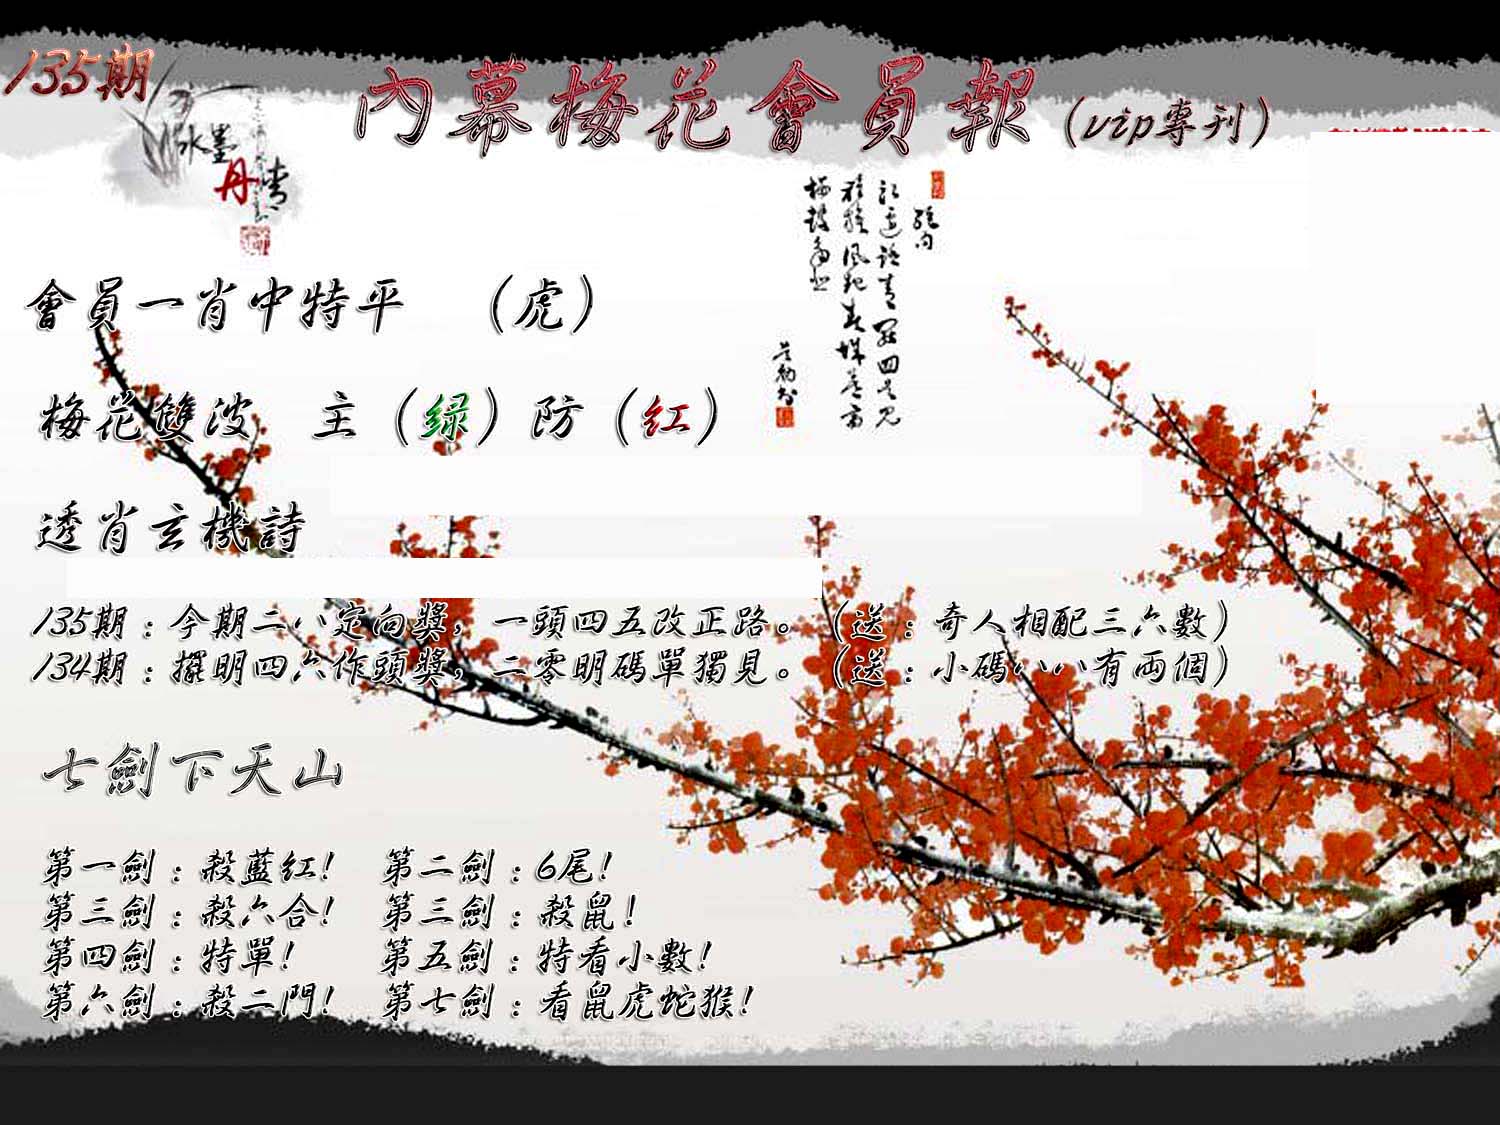 135期
內幕梅花會員報（vip專刊）
水墨
丹青
會員一肖中特平　（虎）
梅花雙波　主（绿）防（红）
透肖玄機詩
135期：今期二八定向獎，一頭四五改正路。（送：奇人相配三六數）
134期：擺明四六作頭獎，二零明碼單獨見。（送：小碼八八有兩個）
七劍下天山
第一劍：殺藍紅！　第二劍：6尾！
第三劍：殺六合！　第三劍：殺鼠！
第四劍：特單！　第五劍：特看小數！
第六劍：殺二門！　第七劍：看鼠虎蛇猴！